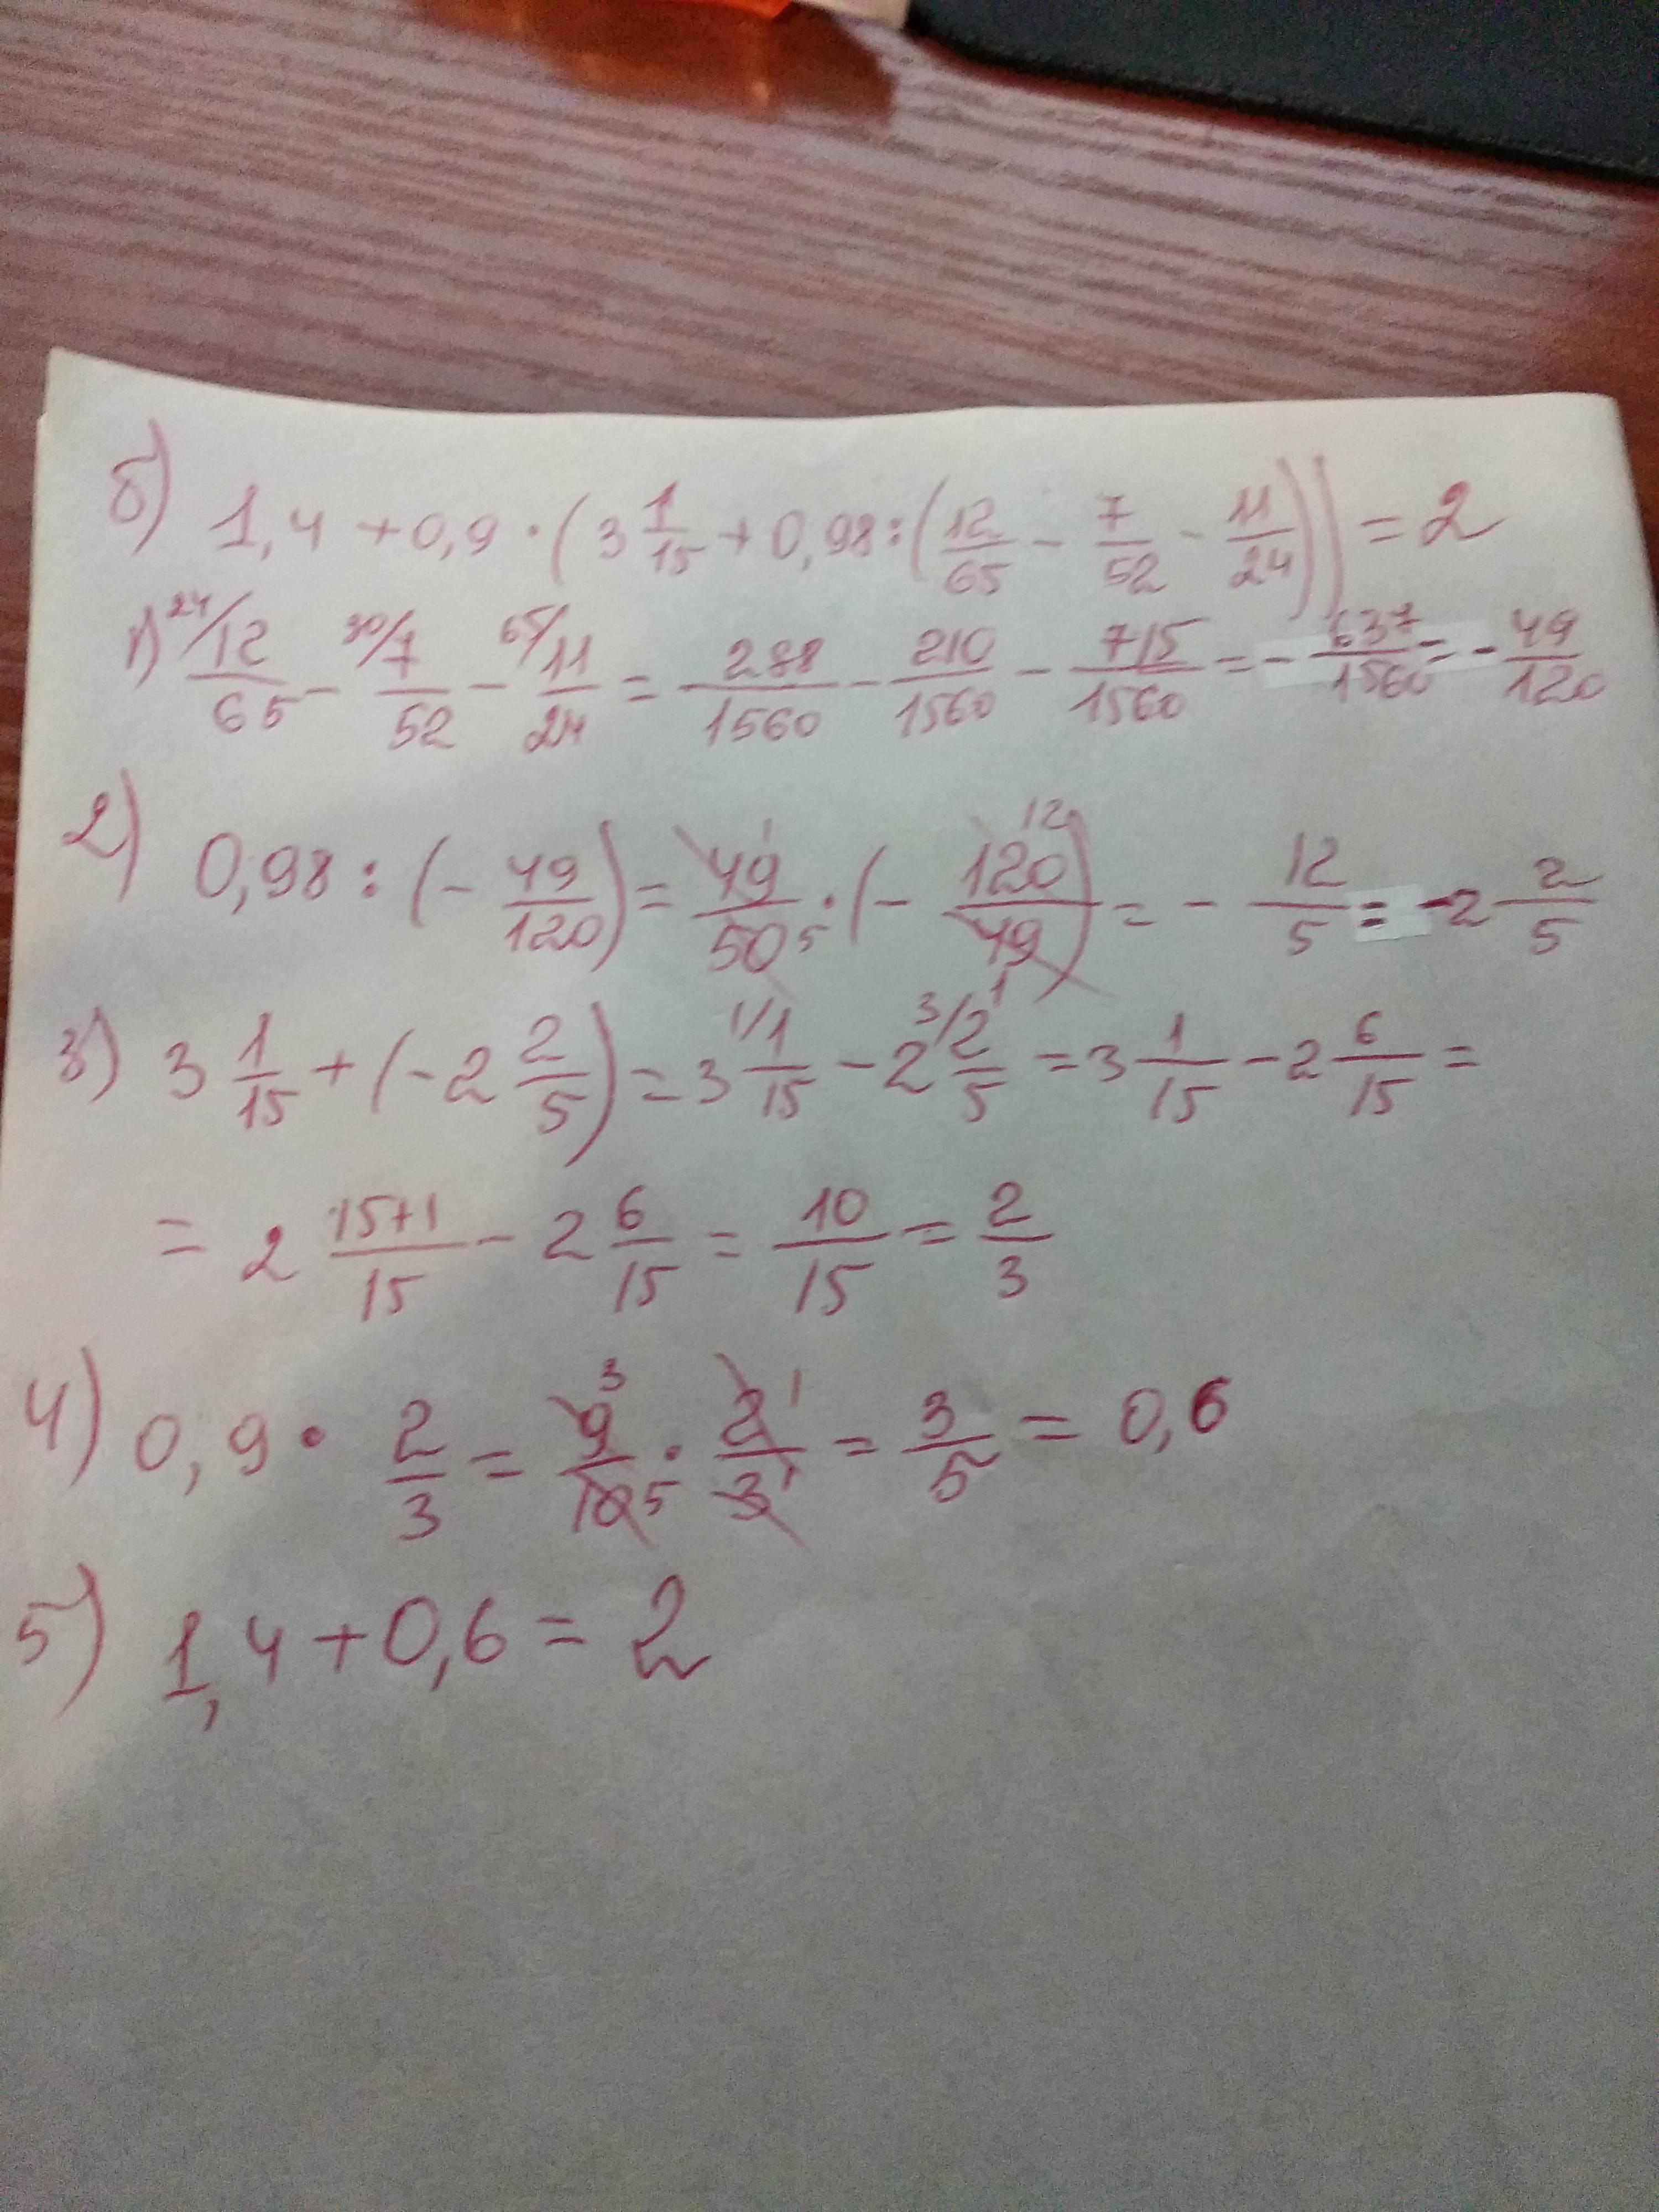 б) 1,4 + 0,9 · (3 1/15 + 0,98 : (12/65 - 7/52 - 11/24)) = 2
1) 24/ 12/65 - 30/ 7/52 - 65/ 11/24 = 288/1560 - 210/1560 - 715/1560 = - 637/1560 = - 49/120
2) 0,98 : (- 49/120) = 49 1/50 5 · (- 120 12/49 1) = - 12/5 = -2 2/5
3) 3 1/15 + (-2 2/5) = 3 1/ 1/15 - 2 3/ 2/5 = 3 1/15 - 2 6/15 =
= 2 15+1/15 - 2 6/15 = 10/15 = 2/3
4) 0,9 · 2/3 = 9 3/10 5 · 2 1/3 1 = 3/5 = 0,6
5) 1,4 + 0,6 = 2